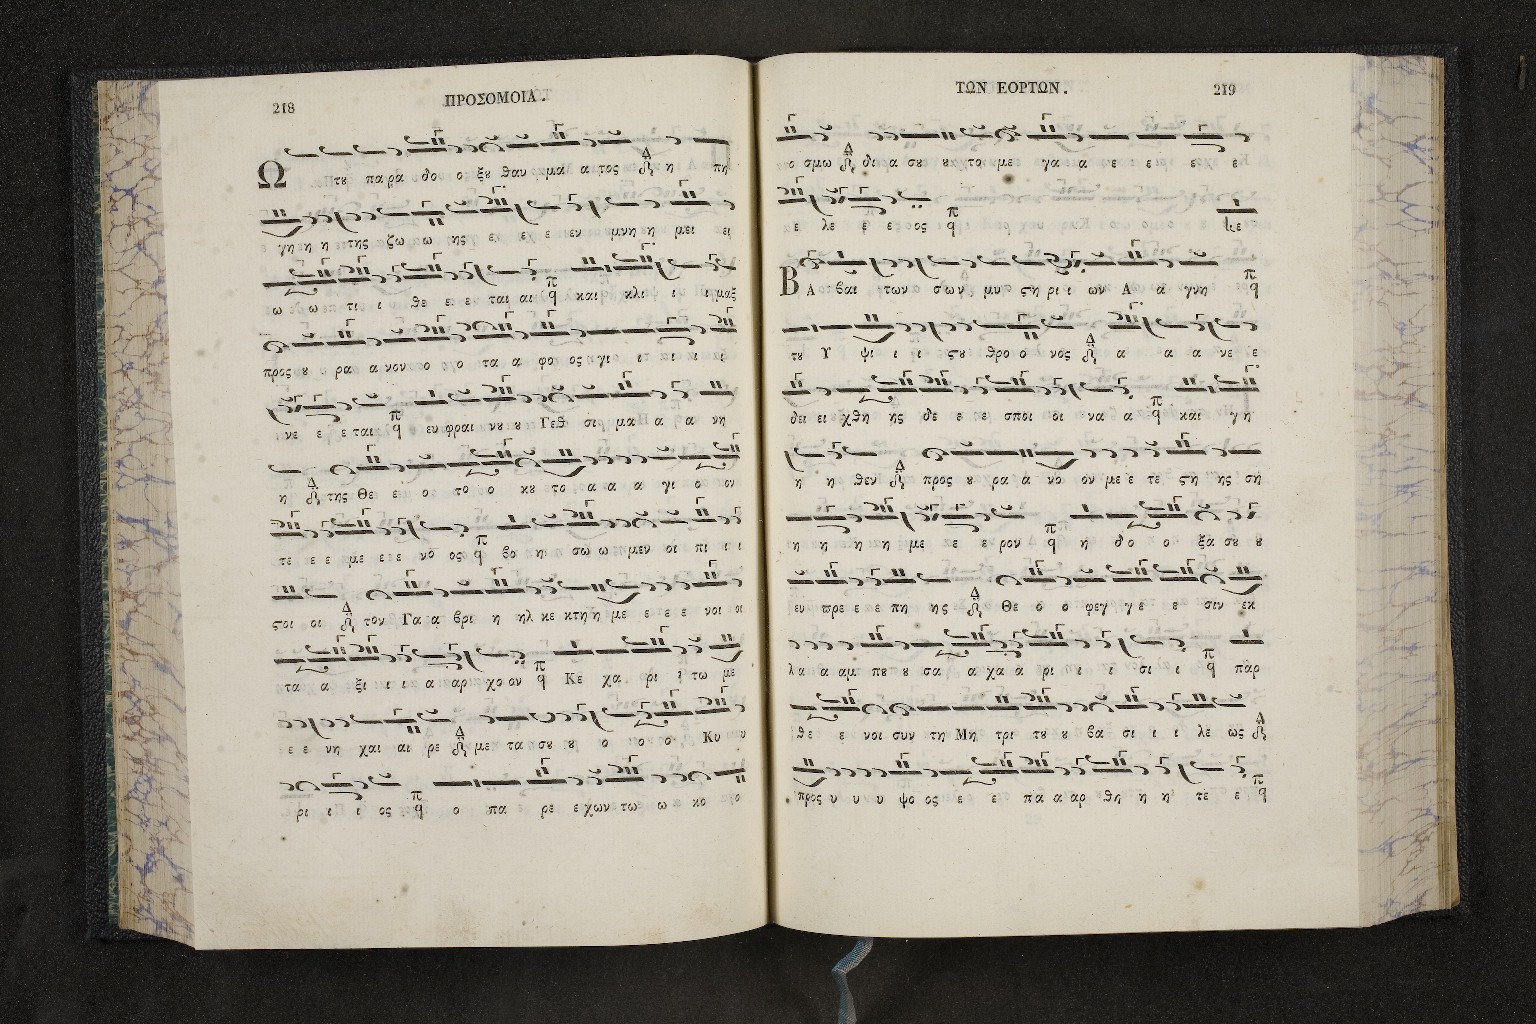 218
ΠΡΟΣΟΜΟΙΑ.
Ω του πα ρα δο ο ξου θαυ μα α τος η πη
γη η η της ζω ω ης ε ε ε εν μνη η μει ει
ω ω τι ι θε ε ε ται αι και κλι ι ι μαξ
προς ου ρα α νον ο ο ο τα α φο ο ος γι ι ι ι ι
νε ε ε ται ευ φραι νου ου Γεθ ση μα α α νη
η της Θε ε ο το ο κου το α α α γι ο ον
τε ε ε με ε ε νο ος βο η σω ω μεν οι πι ι ι
ςοι οι τον Γα α βρι η ηλ κε κτη η με ε ε ε νοι οι
τα α ξι ι ι α αρ χο ον Κε χα ρι ι τω με
ε ε νη χαι αι ρε με τα σου ου ο ο ο Κυ υ
ρι ι ι ος ο πα ρε ε χων τω ω κο ο
ΤΩΝ ΕΟΡΤΩΝ.
219
ο σμω δι α σου ου το με γα α ε ε ε ε ε
ε λε ε ε ος
κε
ΒΑ βαι των σων μυ ςη ρι ι ων Α α γνη
του Υ ψι ι ι ςου θρο ο νος α α α νε ε
δει ει χθη ης δε ε ε σποι οι να α και γη
η η θεν προς ου ρα α νο ον με ε τε ςη ης ση
η η η η με ε ε ρον η δο ο ξα σου ου
ευ πρε ε ε πη ης Θε ο ο φεγ γε ε σιν εκ
λα α αμ που ου σα α χα α ρι ι ι σι ι παρ
θε ε νοι συν τη Μη τρι του ου βα σι ι ι λε ως
προς υ υ υ ψο ος ε ε πα α αρ θη η η τε ε